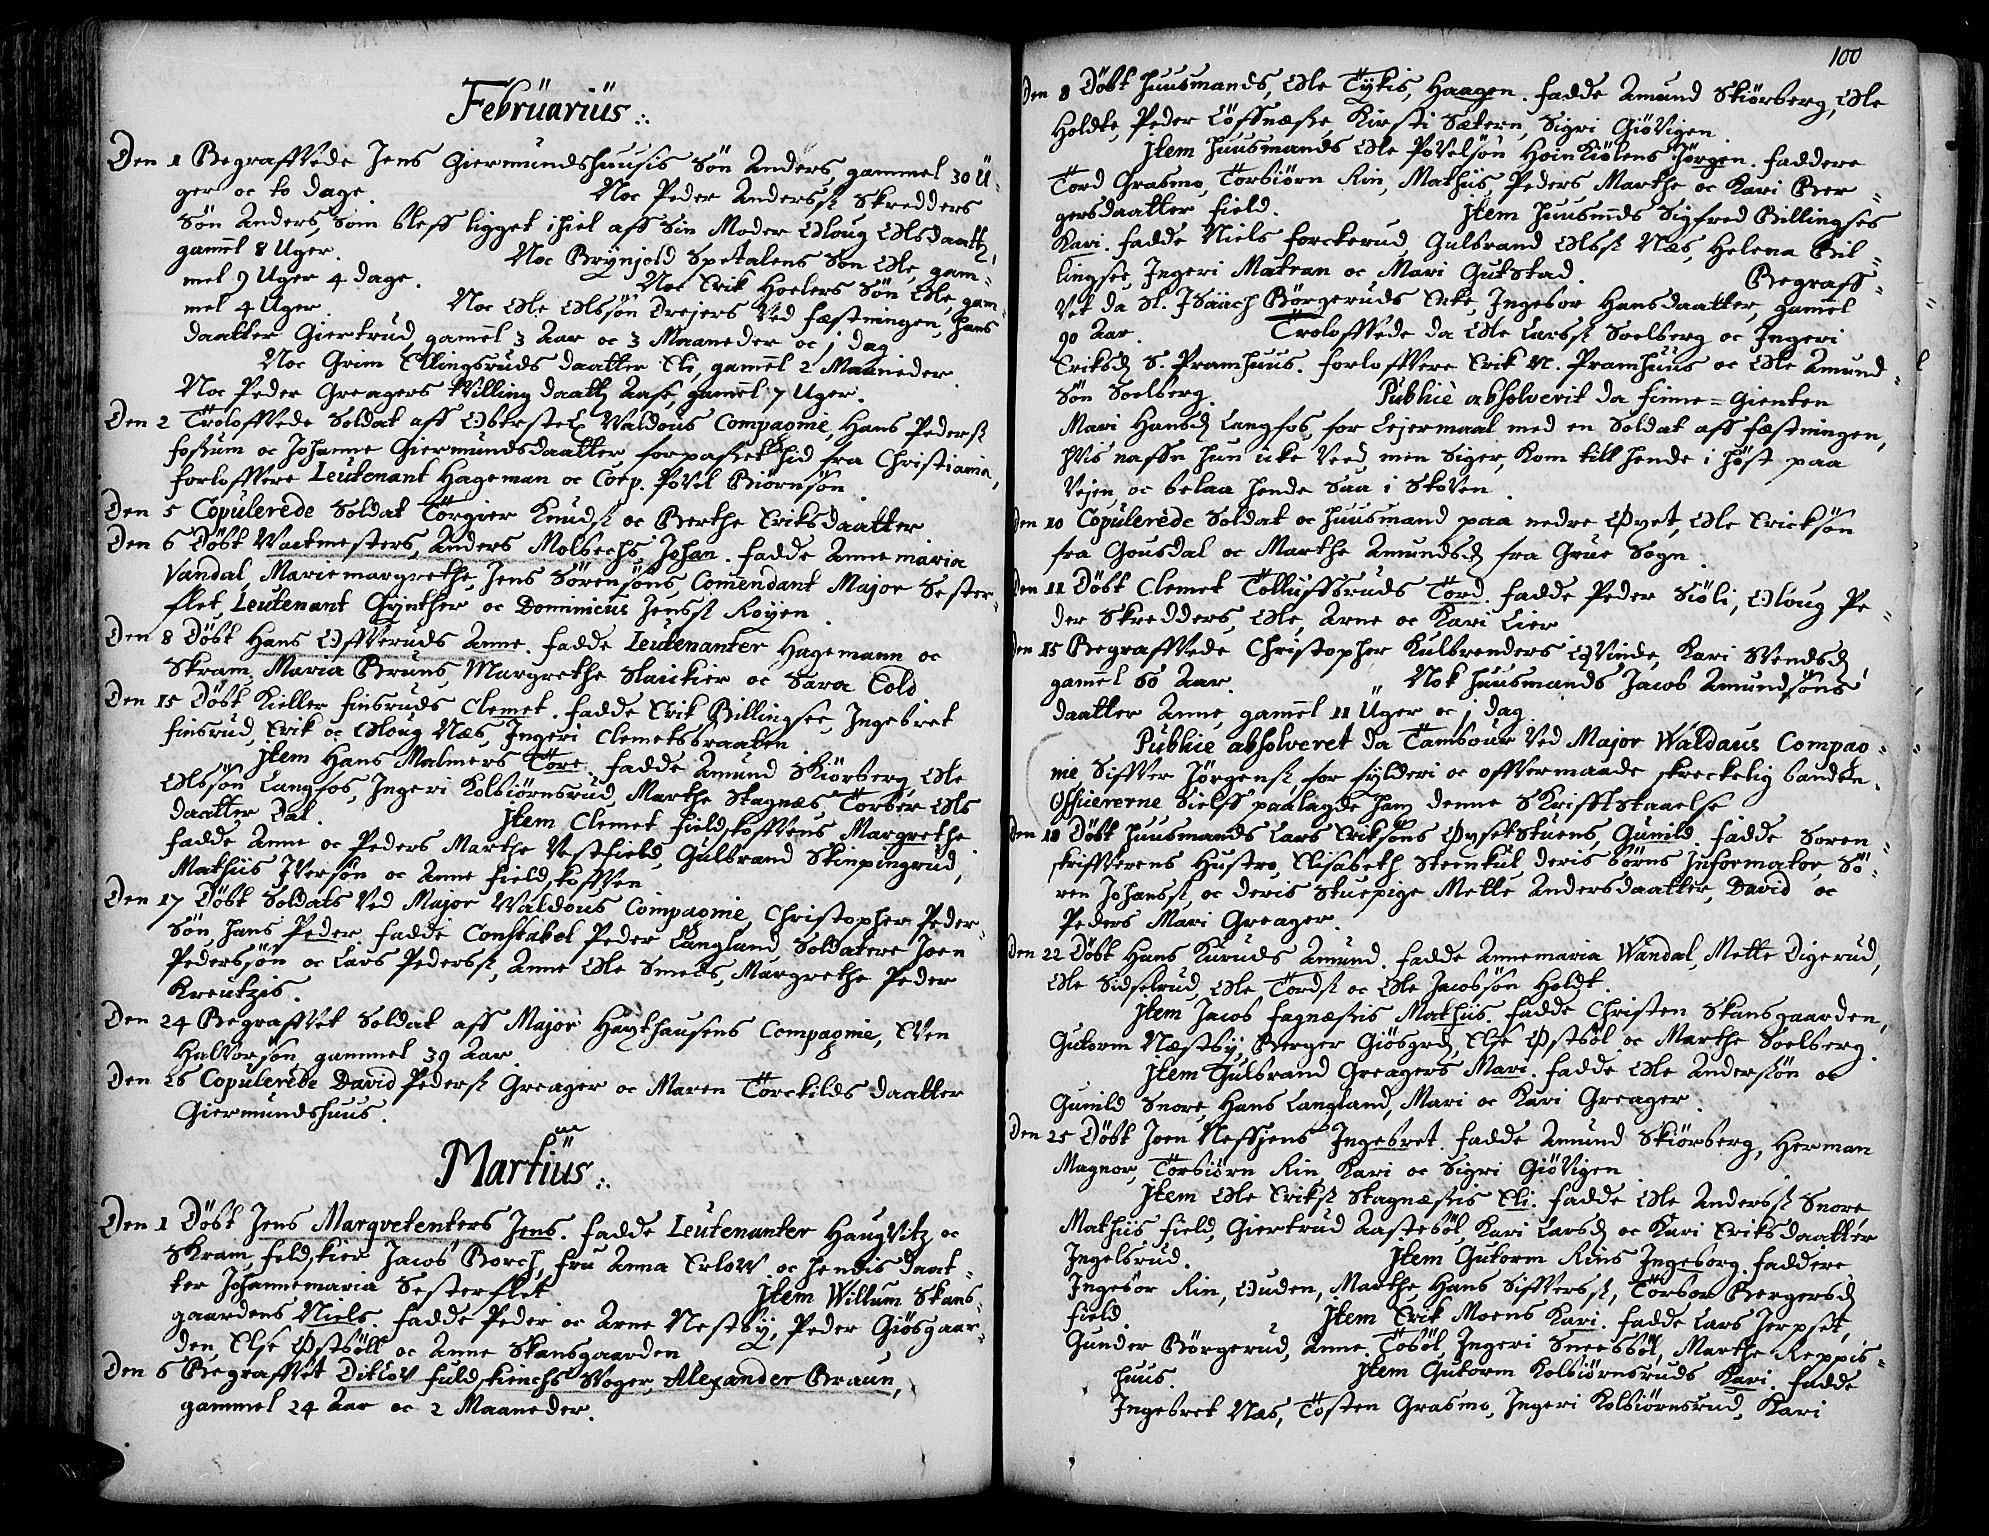 Februarius
Den 1 Begraffvede Jens Giermundshuusis Søn Anders, gammel 30 U=
ger oc to dage. Noc Peder Anderss: Skredders
Søn Anders, som bleff ligget ihiel aff Sin Moder Oloug Olsdaatt:
gamel 8 Uger. Noc Brynjold Spetalens Søn Ole, gam=
mel 9 Uger 4 dage. Noc Erik Hoelers Søn Ole, gam
mel 4 Uger. Noc Ole Olssøn Drejers ved Fæstningen, hans
daatter Giertrud, gamel 3 Aar oc 3 Maaneder oc j dag
Noc Grim Ellingsruds daatter Eli, gamel 2 Maaneder.
Noc Peder Greagers Tvilling daatt: Aase, gamel 7 Uger.
Den 2 Troloffvede Soldat aff Obersteℓ Valdous Compagnie, Hans Peders:
Fossum oc Johanne Giermundsdaatter forpasset hid fra Christiania,
forloffvere Leutenant Hageman oc Corp. Povel Biørnsøn.
Den 5 Copulerede Soldat Törgier Knuds: oc Berthe Eriksdaatter
Den 6 Döbt Vactmesters, Anders Molbechs Johan. fadde Anne maria
Vandal, Mariemargrethe, Jens Sörensöns Comendant Major Sester=
flet, Leutenant Gynther oc Dominicus Jenss: Royen.
Den 8 Döbt Hans Offveruds Anne. fadde Leutenanter Hagemann oc
Skram, Maria Bruns Margrethe Slaickier oc Sara Cold
Den 15 Döbt Kieller finsruds Clemet. fadde Erik Billingsee, Ingebret
finsrud, Erik oc Oloug Næs, Ingeri Clemetsbraaten
jtem Hans Malmers Töre. fadde Amund Skiørberg, Ole
Olssön Langfos, Ingeri Kolbiørnsrud, Marthe Skagnæs, Torber Ols
daatter Dal. jtem Clemet Fieldskoffvens Margrethe.
fadde Anne oc Peders Marthe Vestfield, Gulbrand Skinpingrud,
Mathiis Iversøn oc Anne Fieldskoffven
Den 17 Döbt Soldats ved Major Valdous Compagnie, Christopher Peder=
søn hans Peder. fadde Constabel Peder Langland Soldatere Joen
Pederssøn oc Lars Pederss:, Anne Ole Smeds, Margrethe Peder
Kreutzis.
Den 24 Begraffvet Soldat aff Major Haxthausens Compagnie, Even
Halvorsøn gammel 39 Aar
Den 26 Copulerede David Peders: Greager oc Maren Törckilds daatter
Giermundshuus.
Martius
Den 1 Döbt Jens Marqvetenters Jens. fadde Leutenanter Haugvitz oc
Skram, feldskier Jacob Borch, fru Anna Erlow oc hendis daat=
ter Johannemaria Sesterflet jtem Willum Skans=
gaardens Niels. fadde Peder oc Arne Nestby, Peder Giösgaar=
den, Else Østbölt oc Anne Skansgaarden
Den 6 Begraffvet Ditlov fuldskienchs Svoger, Alexander Braun,
gammel 24 Aar oc 2 Maaneder.
100
Den 8 Döbt huusmands, Ole Tykis, Haagen. fadde Amund Skiørberg, Ole
Holdte, Peder Løffnæsse Kirsti Sætern, Sigri Giövigen
jtem huusmands Ole Povelsøn Hoinkiølens Jörgen. faddere
Tord Grasmo, Torbiörn Rin, Mathiis, Peders Marthe oc Kari Ber=
gersdaatter field. jtem huusmds Sigfred Billingses
Kari. fadde Niels forckerud Gulbrand Olss: Næs, Helena Bil=
lingsee, Ingeri Matran oc Mari Gutstad. Begraff=
vet da Sl. Isaach Börgeruds Ecke, Ingebor Hansdaatter, gamel
90 Aar. Troloffvede da Ole Larss: Soelberg oc Ingeri
Eriksd: S. Pramhuus. forloffvere Erik N. Pramhuus oc Ole Amund=
søn Soelberg. Publicè absolverit da finne=Gienten
Mari Hansd: Langfos, for Lejermaal med en Soldat aff Fæstningen,
hvis naffn hun icke veed, men Siger, Kom till hende i höst paa
Vejen, oc belaa hende Saa i Skoven.
Den 10 Copulerede Soldat oc huusmand paa nedre Øvet, Ole Erickson
fra Gousdal oc Marthe Amundsd: fra Grue Sogn
Den 11 Döbt Clemet Tolluffsruds Tord. fadde Peder Siöli, Oloug Pe=
der Skredders, Ole, Arne oc Kari Lier
Den 15 Begraffvede Christopher Kulbrenders Qvinde, Kari Svendsd:,
gamel 60 Aar. Nok huusmands Jacob Amundsöns
daatter Anne, gamel 11 Uger oc j dag
Publicè absolveret da Tambour ved Major Waldaus Compag=
nie Siffver Jörgens:, for fylderi oc offvermaade skreckelig banden.
Officiererne Sielff paalagde ham denne Skrifftskaaelse
Den 18 Döbt huusmands Lars Eriksöns Øvsetstuens, Gunild. fadde Soren=
skriffverens Hustro, Elisabeth Steenkul deris börns Informator Sö=
ren Johanss:, oc deris Stuepige Mette Andersdaatter, David oc
Peders Mari Greager.
Den 22 Döbt Hans Kuruds Amund. fadde Annemaria Wandal, Mette Digerud,
Ole Sidselrud, Ole Tords: oc Ole Jacobsön Holdt.
jtem Jacob Fagnæssis Mathiis. fadde Christen Skansgaarden,
Gutorm Næstby, Berger Giösgrd: Else Østböl oc Marthe Soelberg.
jtem Gulbrand Greagers Mari. fadde Ole Andersøn oc
Gunild Snore, Hans Langland, Mari oc Kari Greager.
Den 25 Döbt Joen Neffsens Ingebret. fadde Amund Skiörberg, Herman
Magnor, Torbiörn Rin Kari oc Sigri Giövigen
jtem Ole Eriks: Skagnæssis Eli. fadde Ole Anderss: Snore
Mathiis Field, Giertrud Aasteböl, Kari Larsd: oc Kari Eriksdaatter
Ingelsrud. jtem Gutorm Rins Ingeborg. faddere
Ingebor Rin, Ouden, Marthe, Hans Siffverss:, Torbor Bergersd:
Field. jtem Erik Moens Kari. fadde Lars Jerpset,
Gunder Börgerud, Anne Töböl, Ingeri Sneesböl, Marthe Reppis=
huus. jtem Gutorm Kolbiörnsruds Kari. fadde
Ingebret Næs, Tosten Grasmo, Ingeri Kolbiörnsrud, Kari